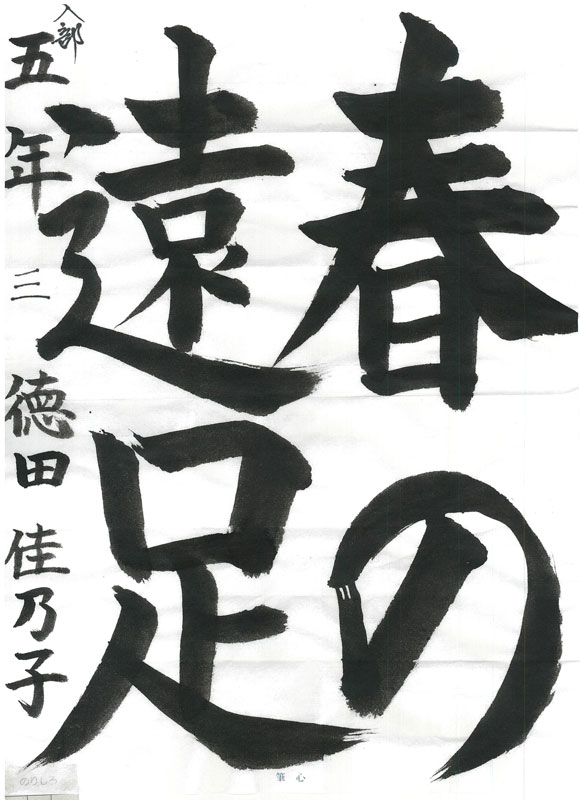 春の
遠足
入部
五年三 徳田佳乃子
のりしろ
筆心